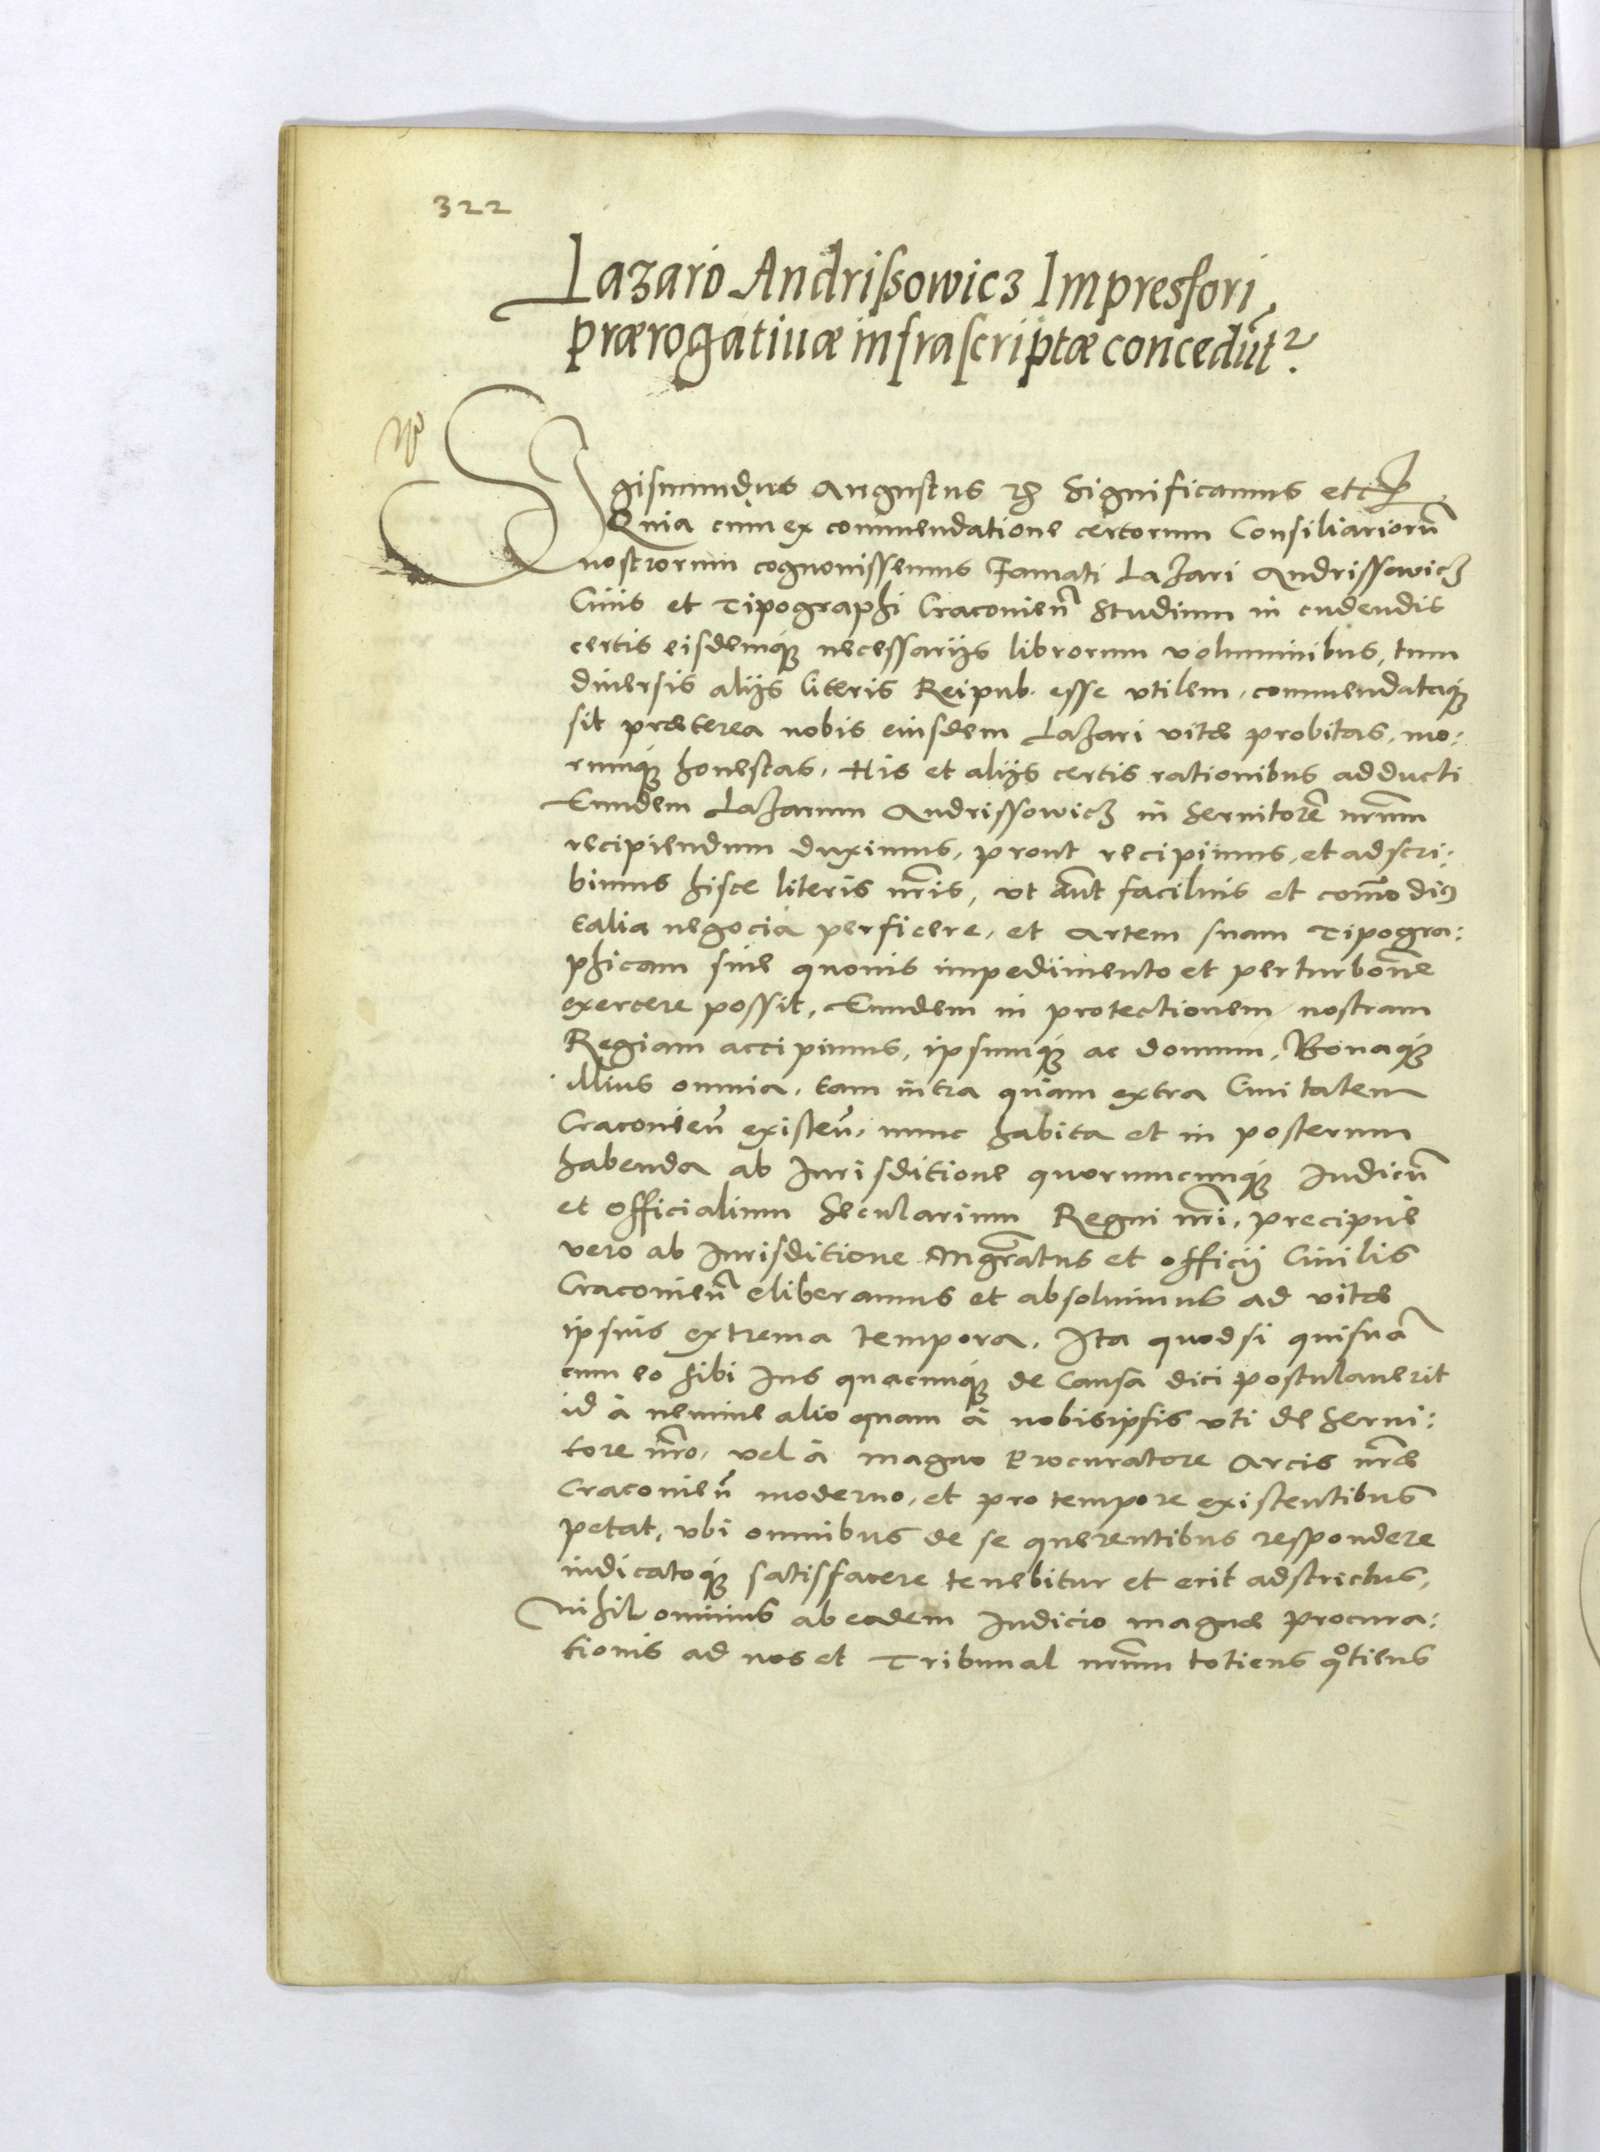 322
Lazaro Andrissowicz Impressori
prærogativæ infrascriptæ concedūt͛.
Sigismundus Augustus Significamus etc
Quia cum ex commendatione certorum Consiliariorū
nostrorum cognouissemus Famati Lazari Andrissowicz
Ciuis et Tipographi Cracouien̄ studium in cudendis
certis eisdemq́ꝫ necessarijs librorum voluminibus, tum
diuersis alijs literis Reipub. esse vtilem, commendataq́ꝫ
sit præterea nobis eiusdem Lazari vitæ probitas, mo:
rumq́ꝫ honestas. His et alijs certis rationibus adducti
Eundem Lazarum Andrissowicz in seruitorē nr̄um
recipiendum duximus, prout recipimus, et adscri:
bimus hisce literis nr̄is, vt aūt facilius et com̄odiꝰ
talia negocia perficere, et Artem suam Tipogra:
phicam sine quouis impedimento et perturbōne
exercere possit. Eundem in protectionem nostram
Regiam accipimus, ipsumq́ꝫ ac domum, Bonaq́ꝫ
illius omnia, tam intra quàm extra Ciuitatem
Cracouien̄ existen̄, nunc habita et in posterum
habenda ab Iurisditione quorumcunq́ꝫ Iudicū
et Officialium secularium Regni nr̄i, precipuè
vero ab Iurisditione Mgr̄atus et officij Ciuilis
Cracouien̄ eliberamus et absoluimus ad vitæ
ipsius extrema tempora. Ita quodsi quisuā
cum eo sibi Ius quacunq́ꝫ de Causa dici postulauerit
id à nemine alio quam à nobis ipsis vti de serui:
tore nr̄o, vel à magno Procuratore Arcis nr̄æ
Cracouien̄ moderno, et pro tempore existentibus
petat, vbi omnibus de se querentibus respondere
iudicatoq́ꝫ satisfacere tenebitur et erit adstrictus,
Nihilominus ab eodem Iudicio magnæ procura:
tionis ad nos et Tribunal nr̄um totiens qͦtiens